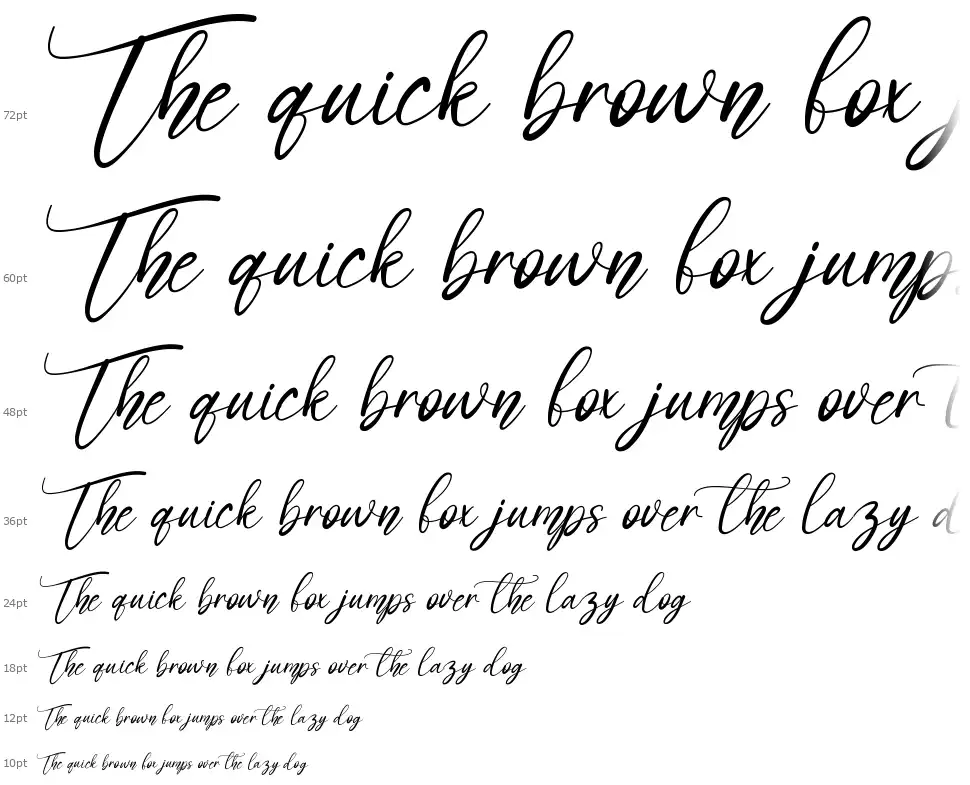 72pt The quick brown fox j
60pt The quick brown fox jumps
48pt The quick brown fox jumps over t
36pt The quick brown fox jumps over the lazy d
24pt The quick brown fox jumps over the lazy dog
18pt The quick brown fox jumps over the lazy dog
12pt The quick brown fox jumps over the lazy dog
10pt The quick brown fox jumps over the lazy dog